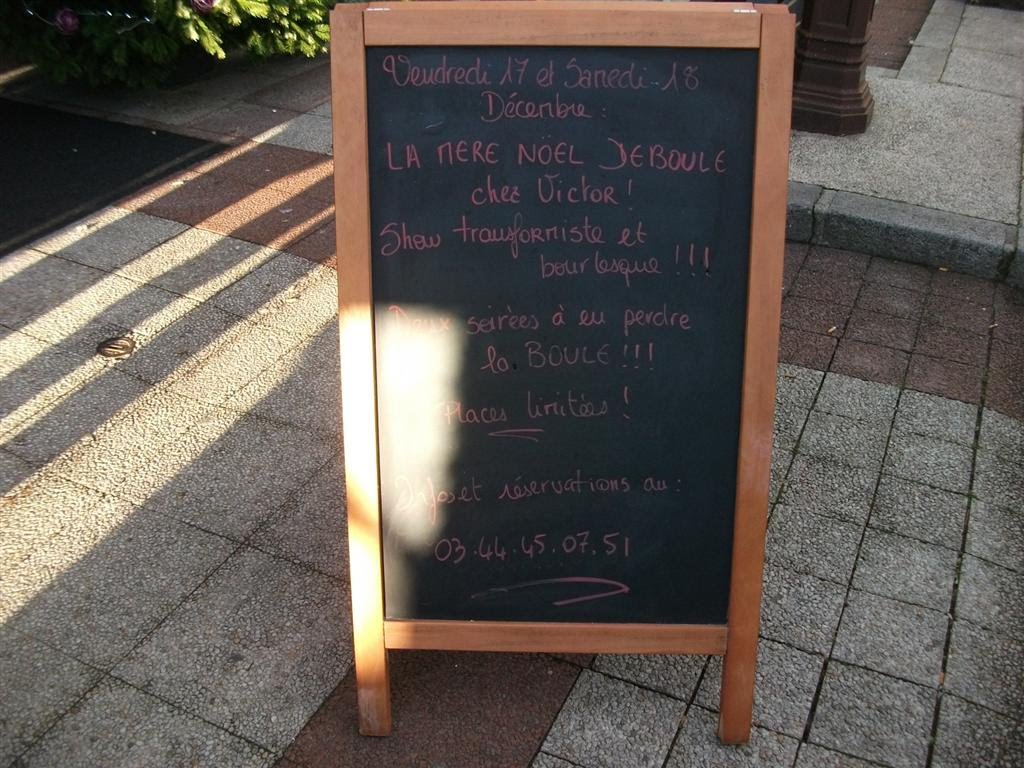 Vendredi 17 et Samedi 18
Décembre :
LA MERE NÖEL DEBOULE
chez Victor !
Show transformiste et
bourlesque !!!
Deux soirées à en perdre
la BOULE !!!
Places limitées !
Infos et réservations au :
03.44.45.07.51